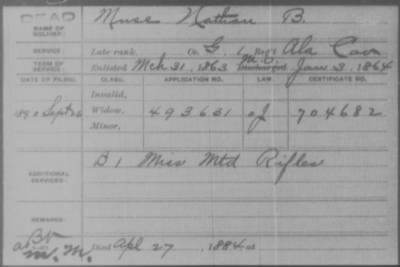 DEAD
NAME OF SOLDIER: Muse Nathan B.
SERVICE: Late rank, Co. G, 1 Reg't Ala Cav
TERM OF SERVICE: Enlisted Mch 31, 1863 M.O. Discharged June 3, 1864
DATE OF FILING. CLASS. APPLICATION NO. LAW. CERTIFICATE NO.
Invalid,
1890 Sept 26 Widow, 493631 704682
Minor,
ADDITIONAL SERVICES: B 1 Miss Mtd Rifles
REMARKS:
Died Apl 27, 1884, at